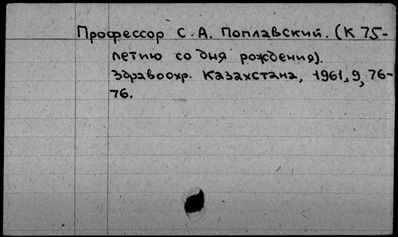 Профессор С. А. Поплавский. (К 75-
летию со дня рождения).
Здравоохр. Казахстана, 1961, 9, 76-
76.